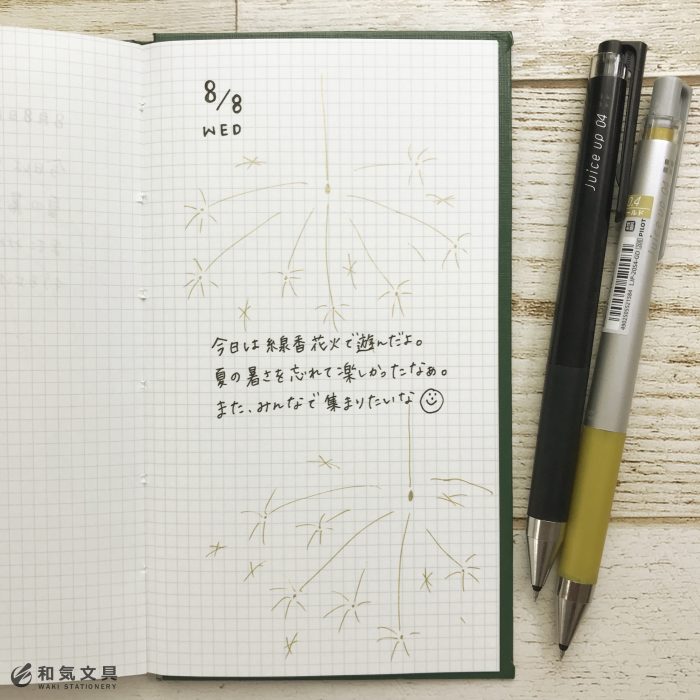 8/8
WED
今日は線香花火で遊んだよ。
夏の暑さを忘れて楽しかったなぁ。
また、みんなで集まりたいな
Juice up 04
0.4
ゴールド
PILOT
LJP-20S4-GD
Juice up 04
和気文具
WAKI STATIONERY